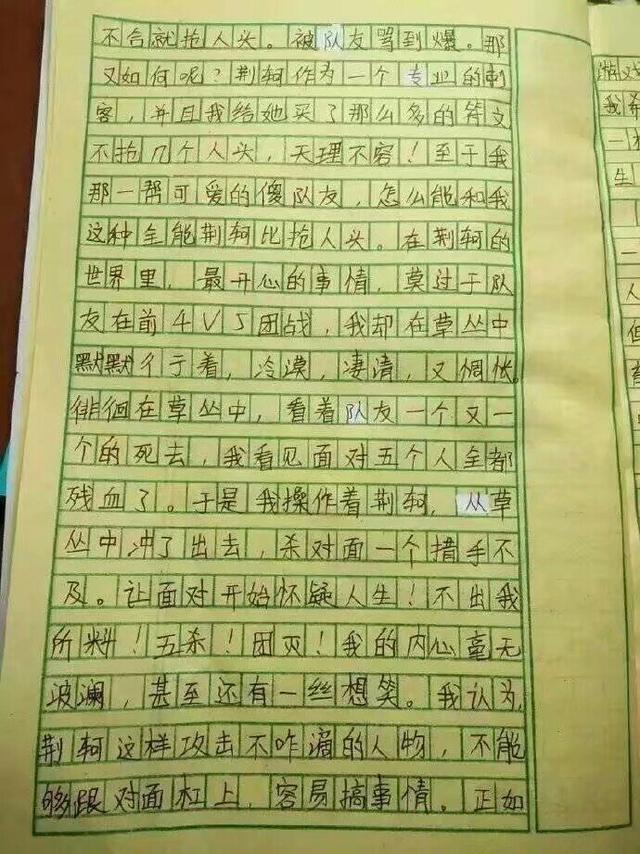 不合就抢人头。被队友骂到爆。那
又如何呢？荆轲作为一个专业的刺
客，并且我给她买了那么多的符文
不抢几个人头，天理不容！至于我
那一帮可爱的傻队友，怎么能和我
这种全能荆轲比抢人头。在荆轲的
世界里，最开心的事情，莫过于队
友在前4V5团战，我却在草丛中
默默彳亍着，冷漠，凄清，又惆怅
徘徊在草丛中，看着队友一个又一
个的死去，我看见面对五个人全都
残血了。于是我操作着荆轲，从草
丛中冲了出去，杀对面一个措手不
及。让面对开始怀疑人生！不出我
所料！五杀！团灭！我的内心毫无
波澜，甚至还有一丝想笑。我认为，
荆轲这样攻击不咋遍的人物，不能
够跟对面杠上，容易搞事情。正如
游戏
我希
一
生
一
人
但